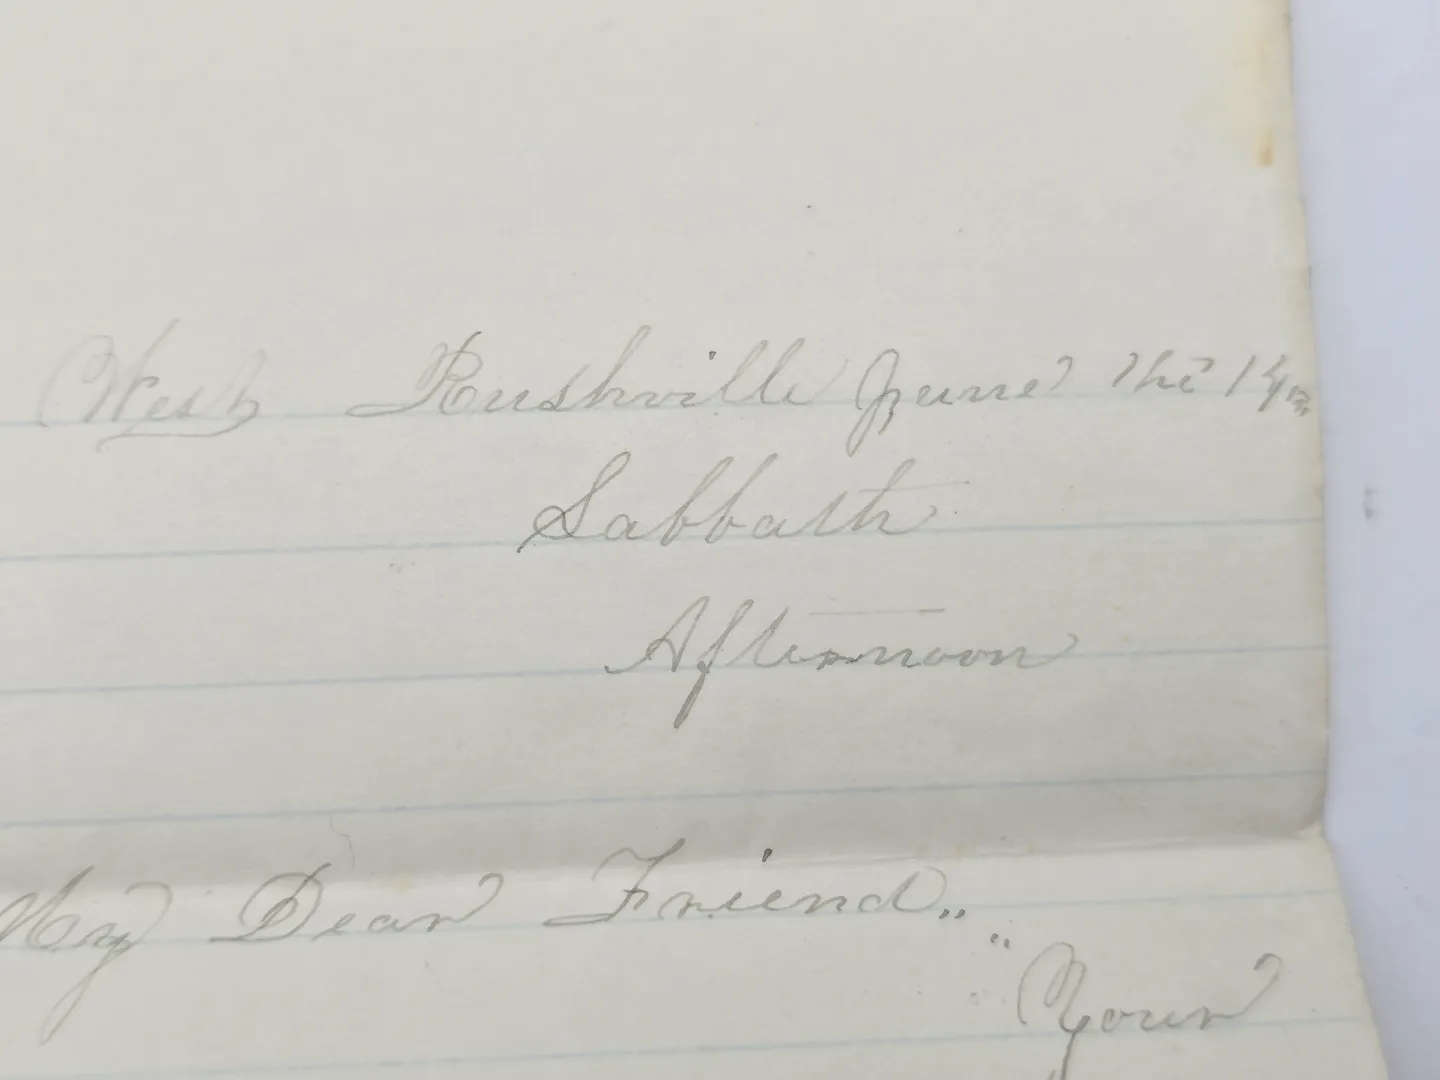 West Rushville June the 14th
Sabbath
Afternoon
My Dear Friend..
.. Your